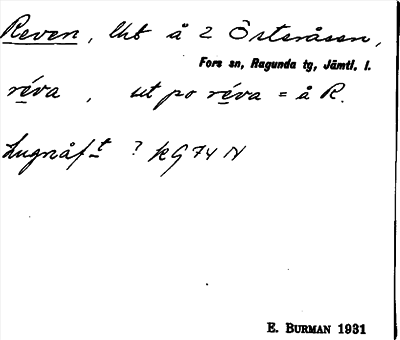 Reven, lht å 2 Österåsen,
Fors sn, Ragunda tg, Jämtl. l.
réva, ut po réva = å R.
? kG74N
E. BURMAN 1931